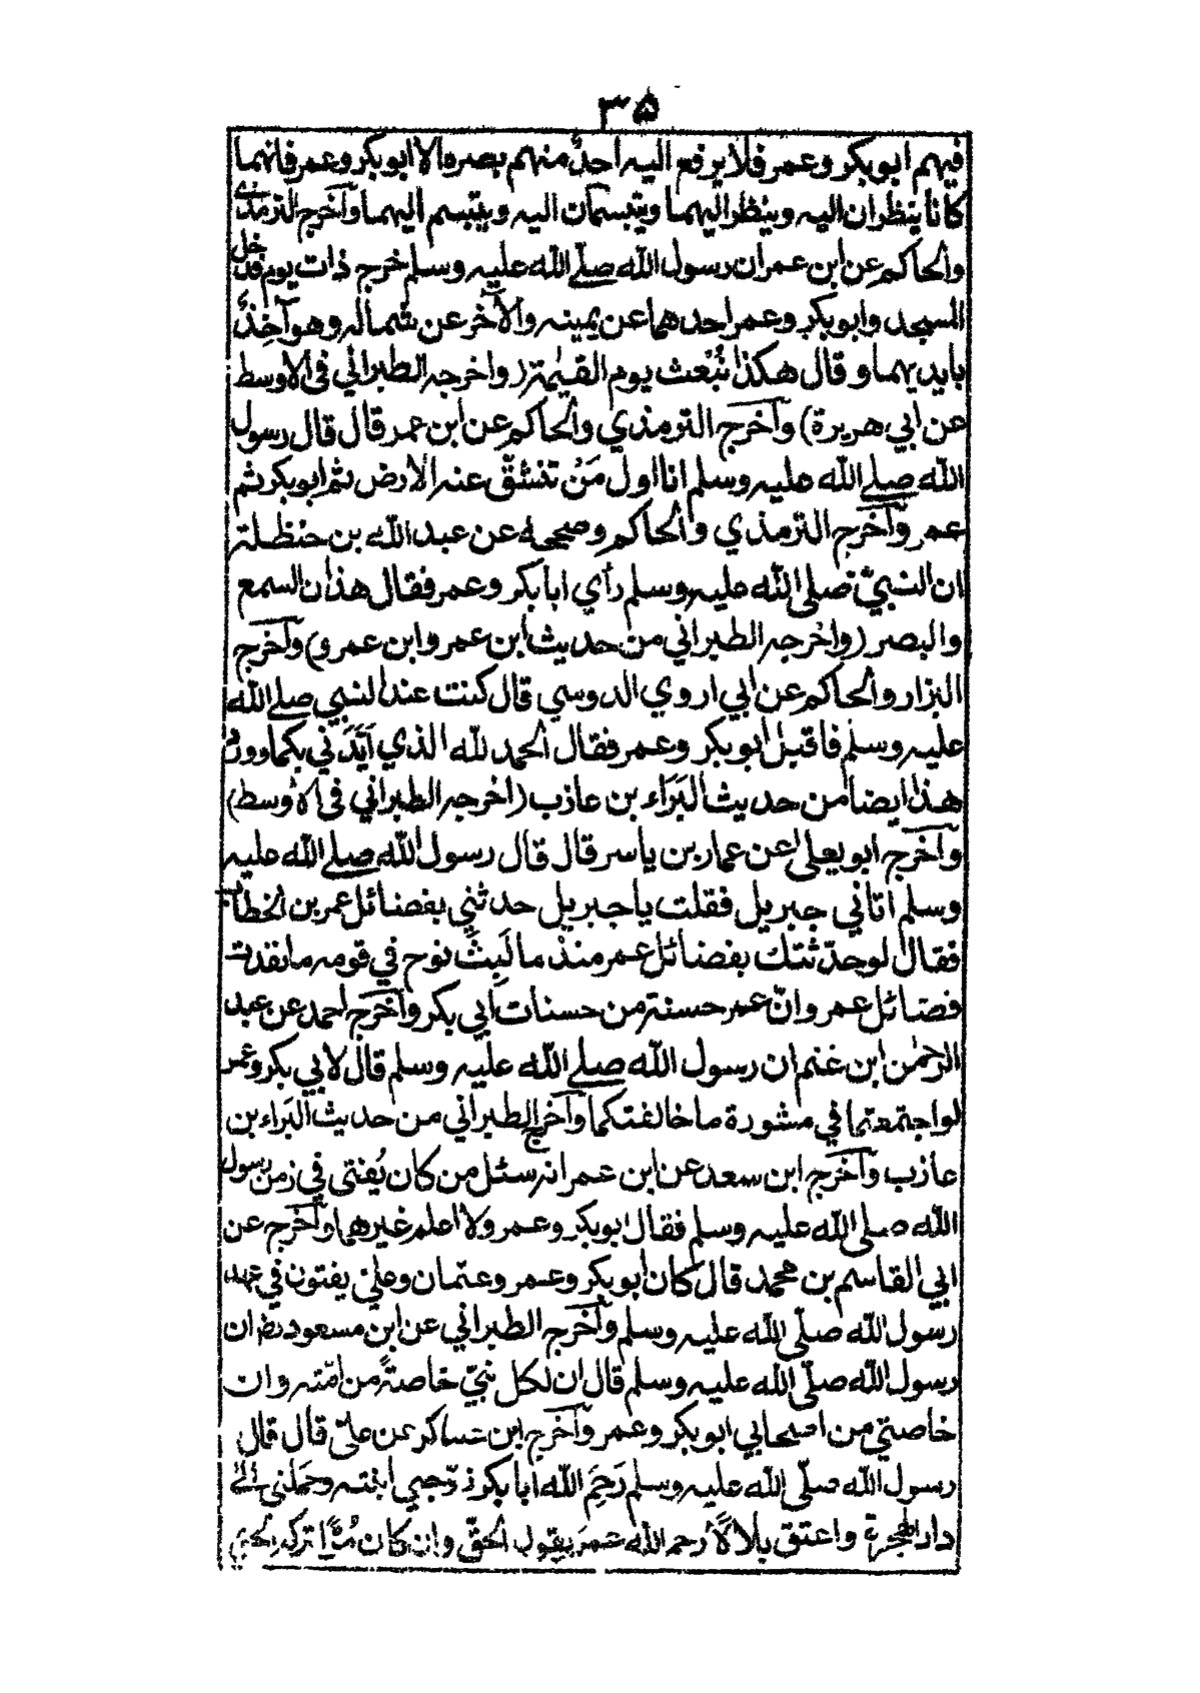 ۳۵
فيهم ابوبكر وعمر فلا يرفع اليه احدٌ منهم بصره الا ابوبكر وعمر فانهما
كانا ينظران اليه وينظر اليهما ويتبسمان اليه ويتبسم اليهما وآخرج الترمذي
والحاكم عن ابن عمر ان رسول الله صلے الله عليه وسلم خرج ذات يوم فدخل
المسجد وابوبكر وعمر احدهما عن يمينه والآخر عن شماله وهو آخِذٌ
بايديهما وقال هكذا نُبْعَث يوم القيٰمة (واخرجه الطبراني في الاوسط
عن ابي هريرة) وآخرج الترمذي والحاكم عن ابن عمر قال قال رسول
الله صلے الله عليه وسلم انا اول مَنْ تنشقّ عنه الارض ثم ابوبكر ثم
عمر وآخرج الترمذي والحاكم وصححه عن عبد الله بن حنظلة
ان النبيّ صلى الله عليه وسلم رأي ابا بكر وعمر فقال هذان السمع
والبصر (واخرجه الطبراني من حديث ابن عمر وابن عمرو) وآخرج
البزار والحاكم عن ابي اروي الدوسي قال كنت عند النبي صلے الله
عليه وسلم فاقبل ابوبكر وعمر فقال الحمد لله الذي اَيَّدَني بكما وورد
هذا ايضا من حديث البَرَاء بن عازب (اخرجه الطبراني في الاوسط)
وآخرج ابو يعلى عن عمار بن ياسر قال قال رسول الله صلے الله عليه
وسلم اتاني جبريل فقلت يا جبريل حدثني بفضائل عمر بن الخطاب
فقال لو حدّثتك بفضائل عمر منذ ما لَبِثَ نوح في قومه ما نفدت
فضائل عمر وانّ عمر حسنة من حسنات ابي بكر وآخرج احمد عن عبد
الرحمٰن ابن غنم ان رسول الله صلے الله عليه وسلم قال لابي بكر وعمر
لو اجتمعتما في مشورة ما خالفتكما وآخرج الطبراني من حديث البَراء بن
عازب وآخرج ابن سعد عن ابن عمر انه سئل من كان يُفتى في زمن رسول
الله صلى الله عليه وسلم فقال ابوبكر وعمر ولا اعلم غيرهما وآخرج عن
ابي القاسم بن محمد قال كان ابوبكر وعمر وعثمان وعليّ يفتون في عهد
رسول الله صلّى الله عليه وسلم وآخرج الطبراني عن ابن مسعود رض ان
رسول الله صلّى الله عليه وسلم قال ان لكل نبيّ خاصةً من امّته وان
خاصتي من اصحابي ابوبكر وعمر وآخرج ابن عساكر عن عليّ قال قال
رسول الله صلّى الله عليه وسلم رَحِمَ الله ابا بكر زوّجني ابنته وحملني الى
دار الهجرة واعتق بلالاً رحم الله عمر يقول الحقّ وان كان مُرّاً تركه الحق